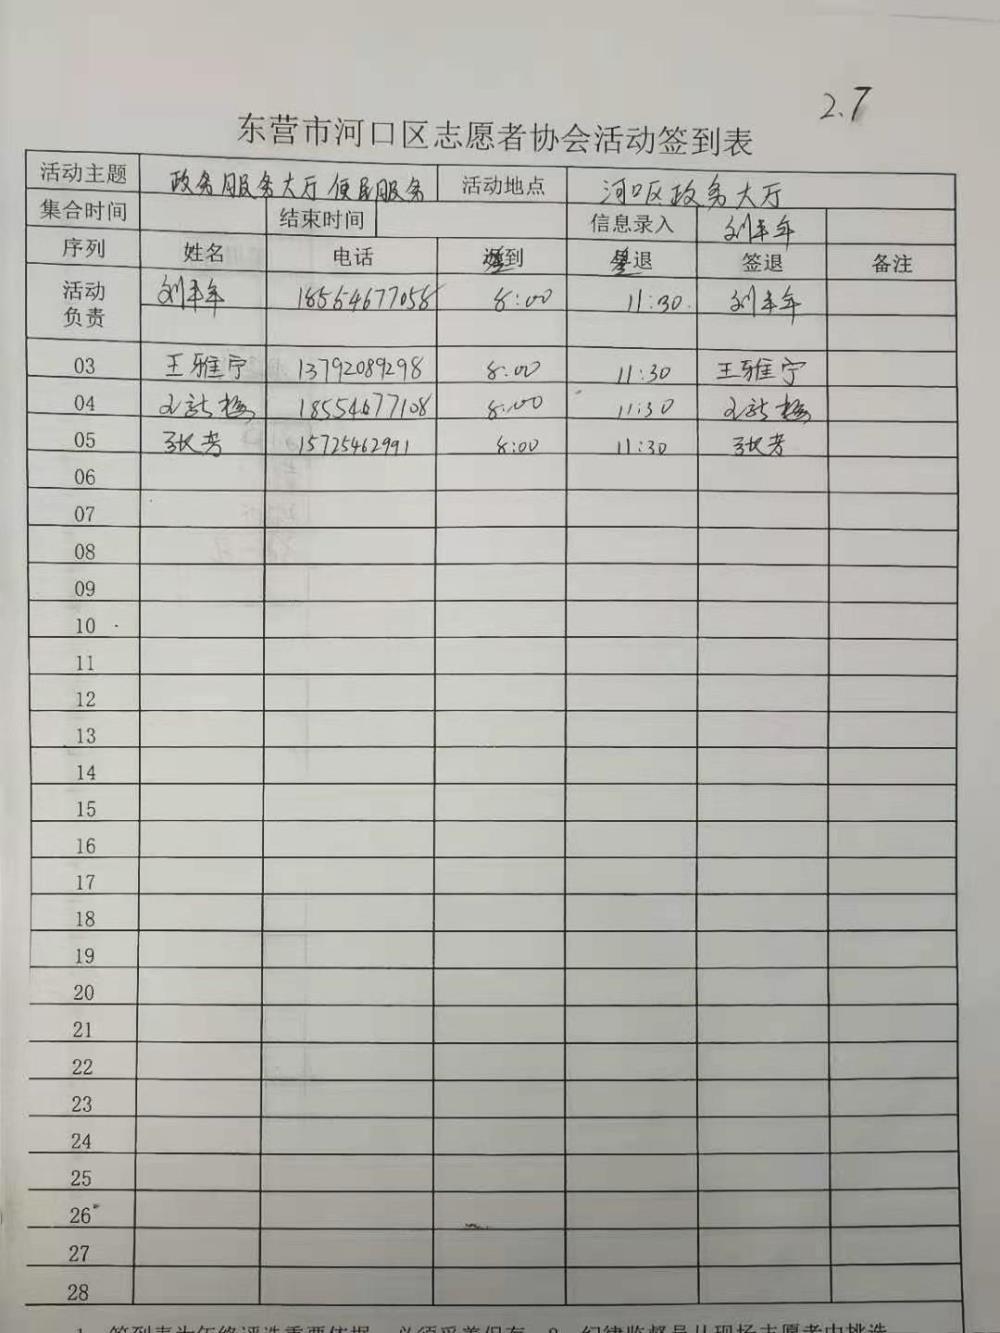 2.7
东营市河口区志愿者协会活动签到表
活动主题 政务服务大厅便民服务 活动地点 河口区政务大厅
集合时间 结束时间 信息录入 刘丰年
序列 姓名 电话 到 退 签退 备注
活动负责 刘丰年 18554677058 8:00 11:30 刘丰年
03 王雅宁 13792089298 8:00 11:30 王雅宁
04 18554677108 8:00 11:30
05 张芳 15725462991 8:00 11:30 张芳
06
07
08
09
10
11
12
13
14
15
16
17
18
19
20
21
22
23
24
25
26
27
28
1、签到表为年终评选重要依据，必须妥善保存。2、纪律监督员从现场志愿者中挑选